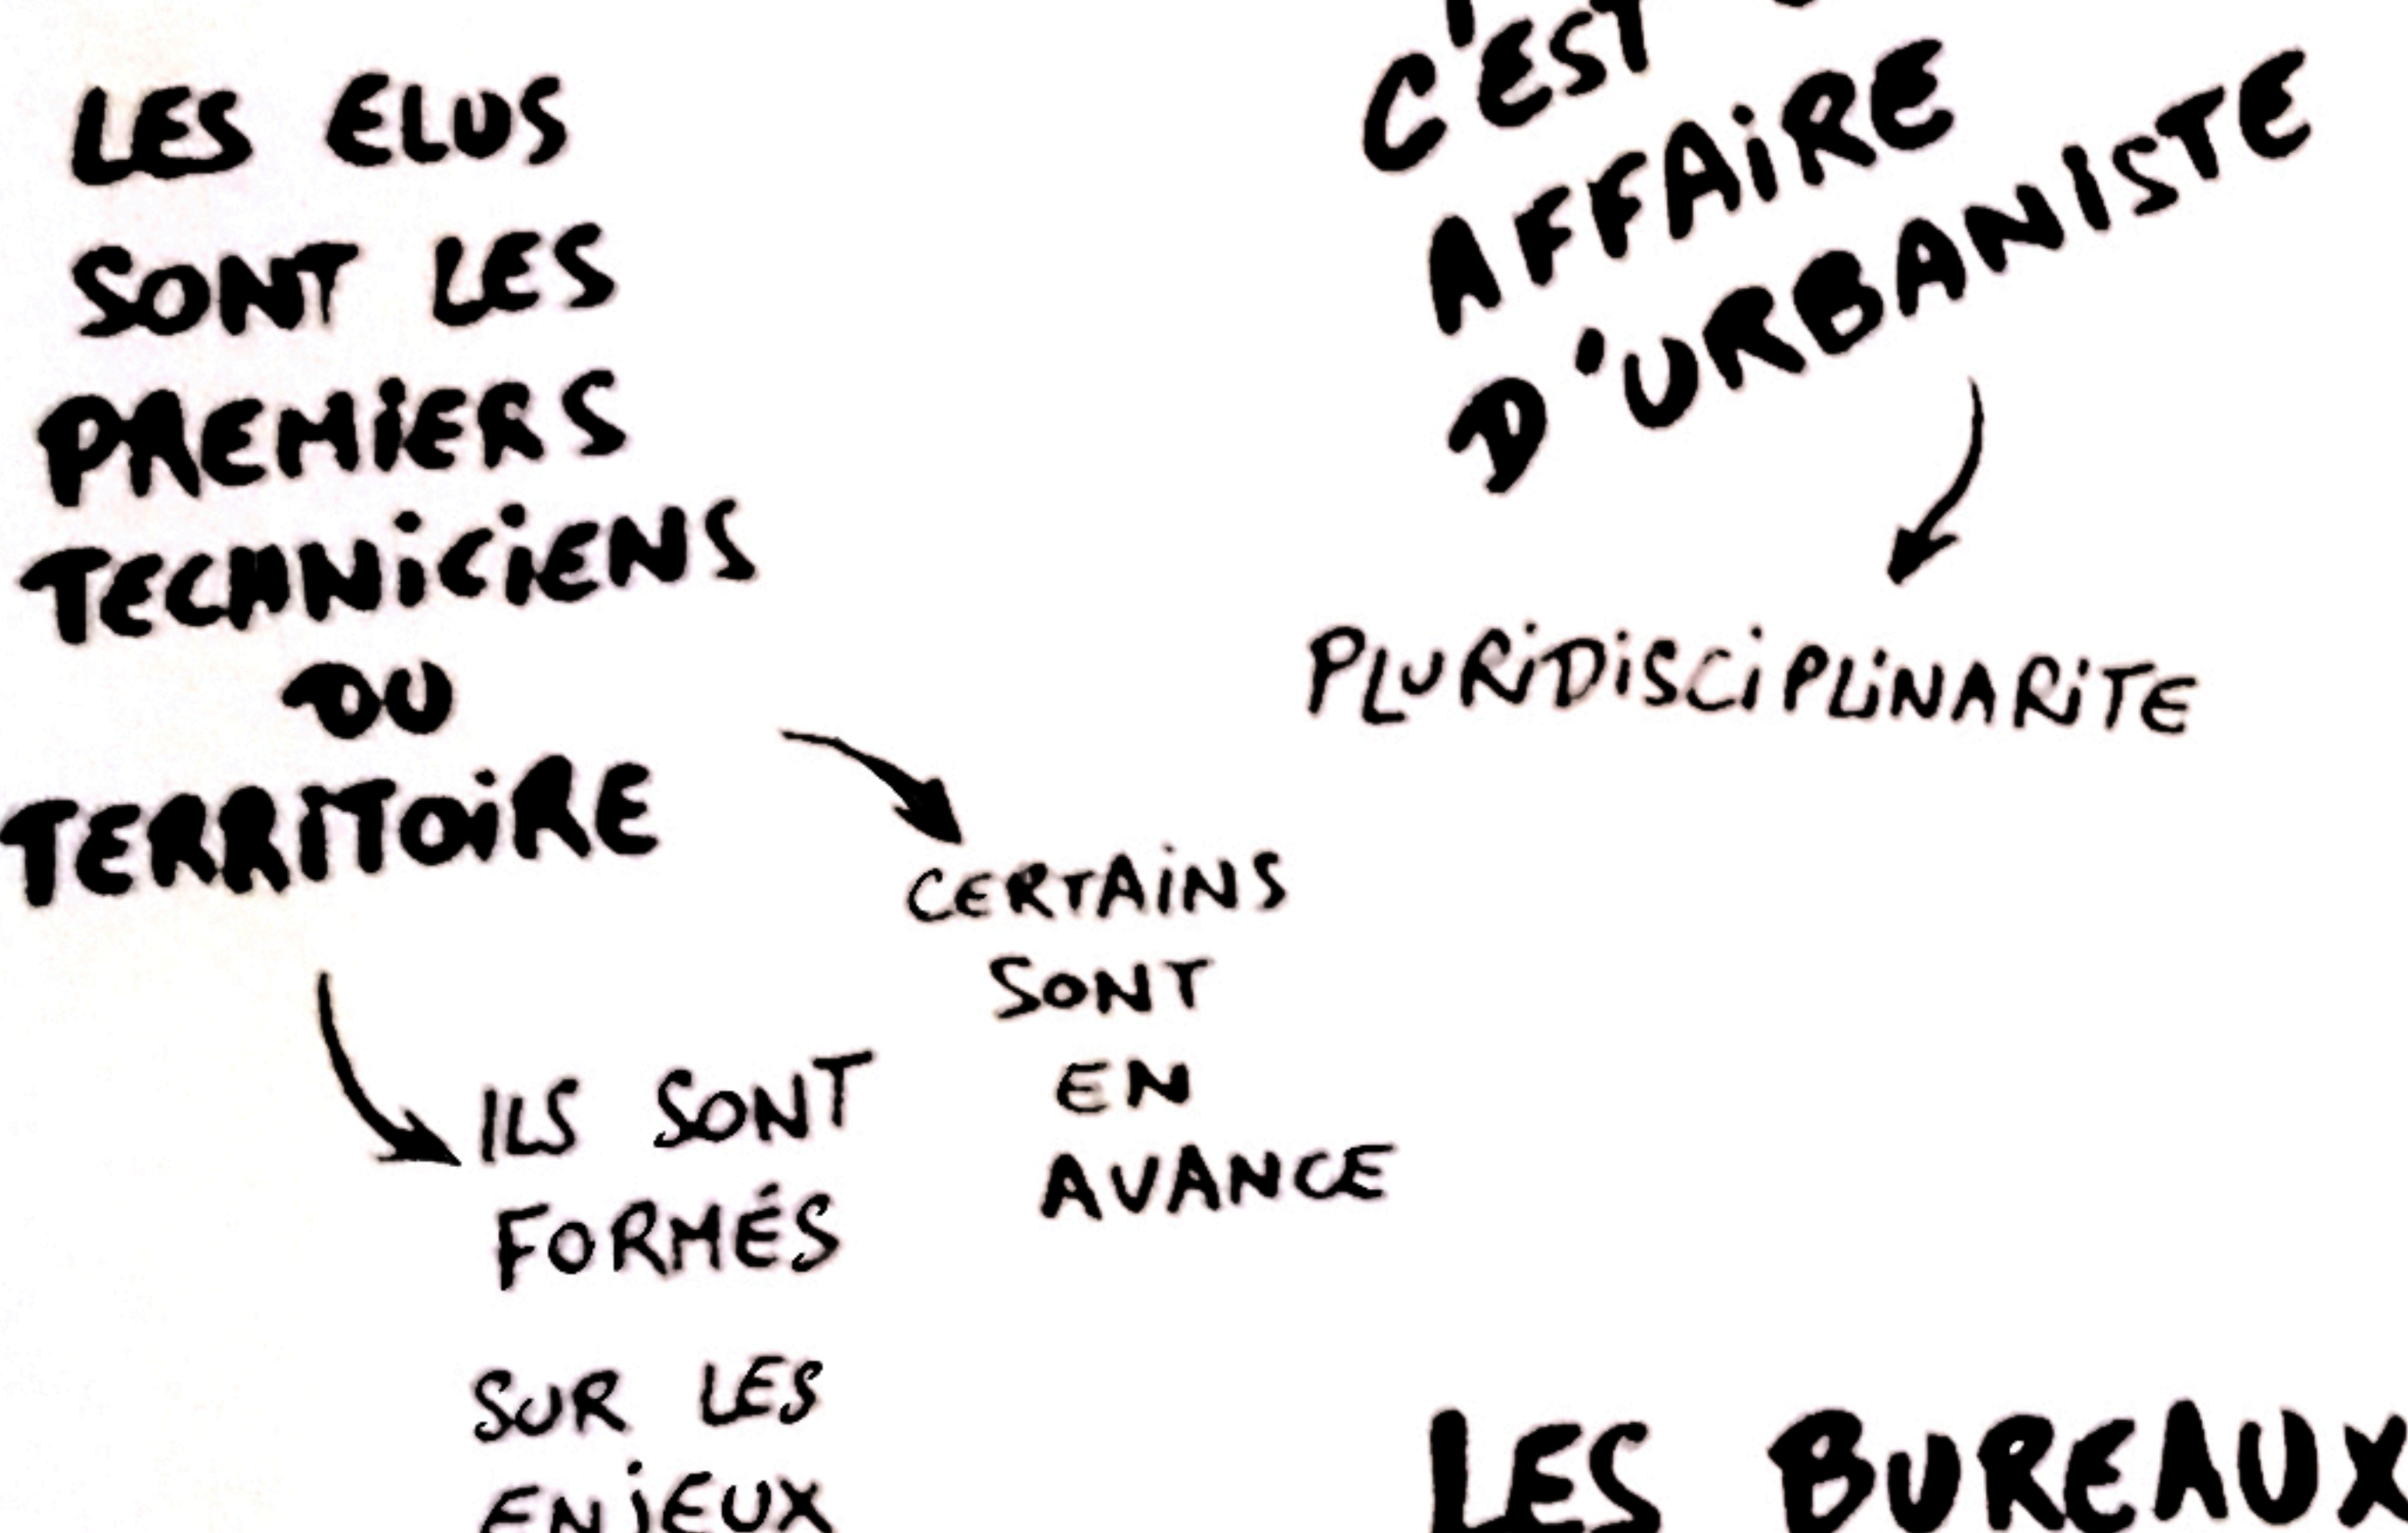 LES ELUS
SONT LES
PREMIERS
TECHNiCiENS
DU
TERRITOiRE
CERTAiNS
SONT
EN
AVANCE
ILS SONT
FORMÉS
SUR LES
ENjEUX
C'EST
AFFAiRE
D'URBANISTE
PLURiDiSCiPLiNARiTE
LES BUREAUX